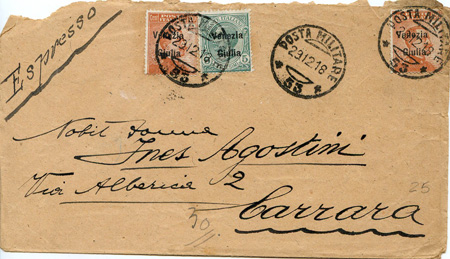 Espresso
Venezia
Giulia
Venezia
Giulia
Venezia
Giulia
POSTA MILITARE
23.12.18
53
POSTA MILITARE
23.12.18
53
POSTA MILITARE
53
Nobil Donna
Ines Agostini
Via Alberica 2
Carrara
25
30